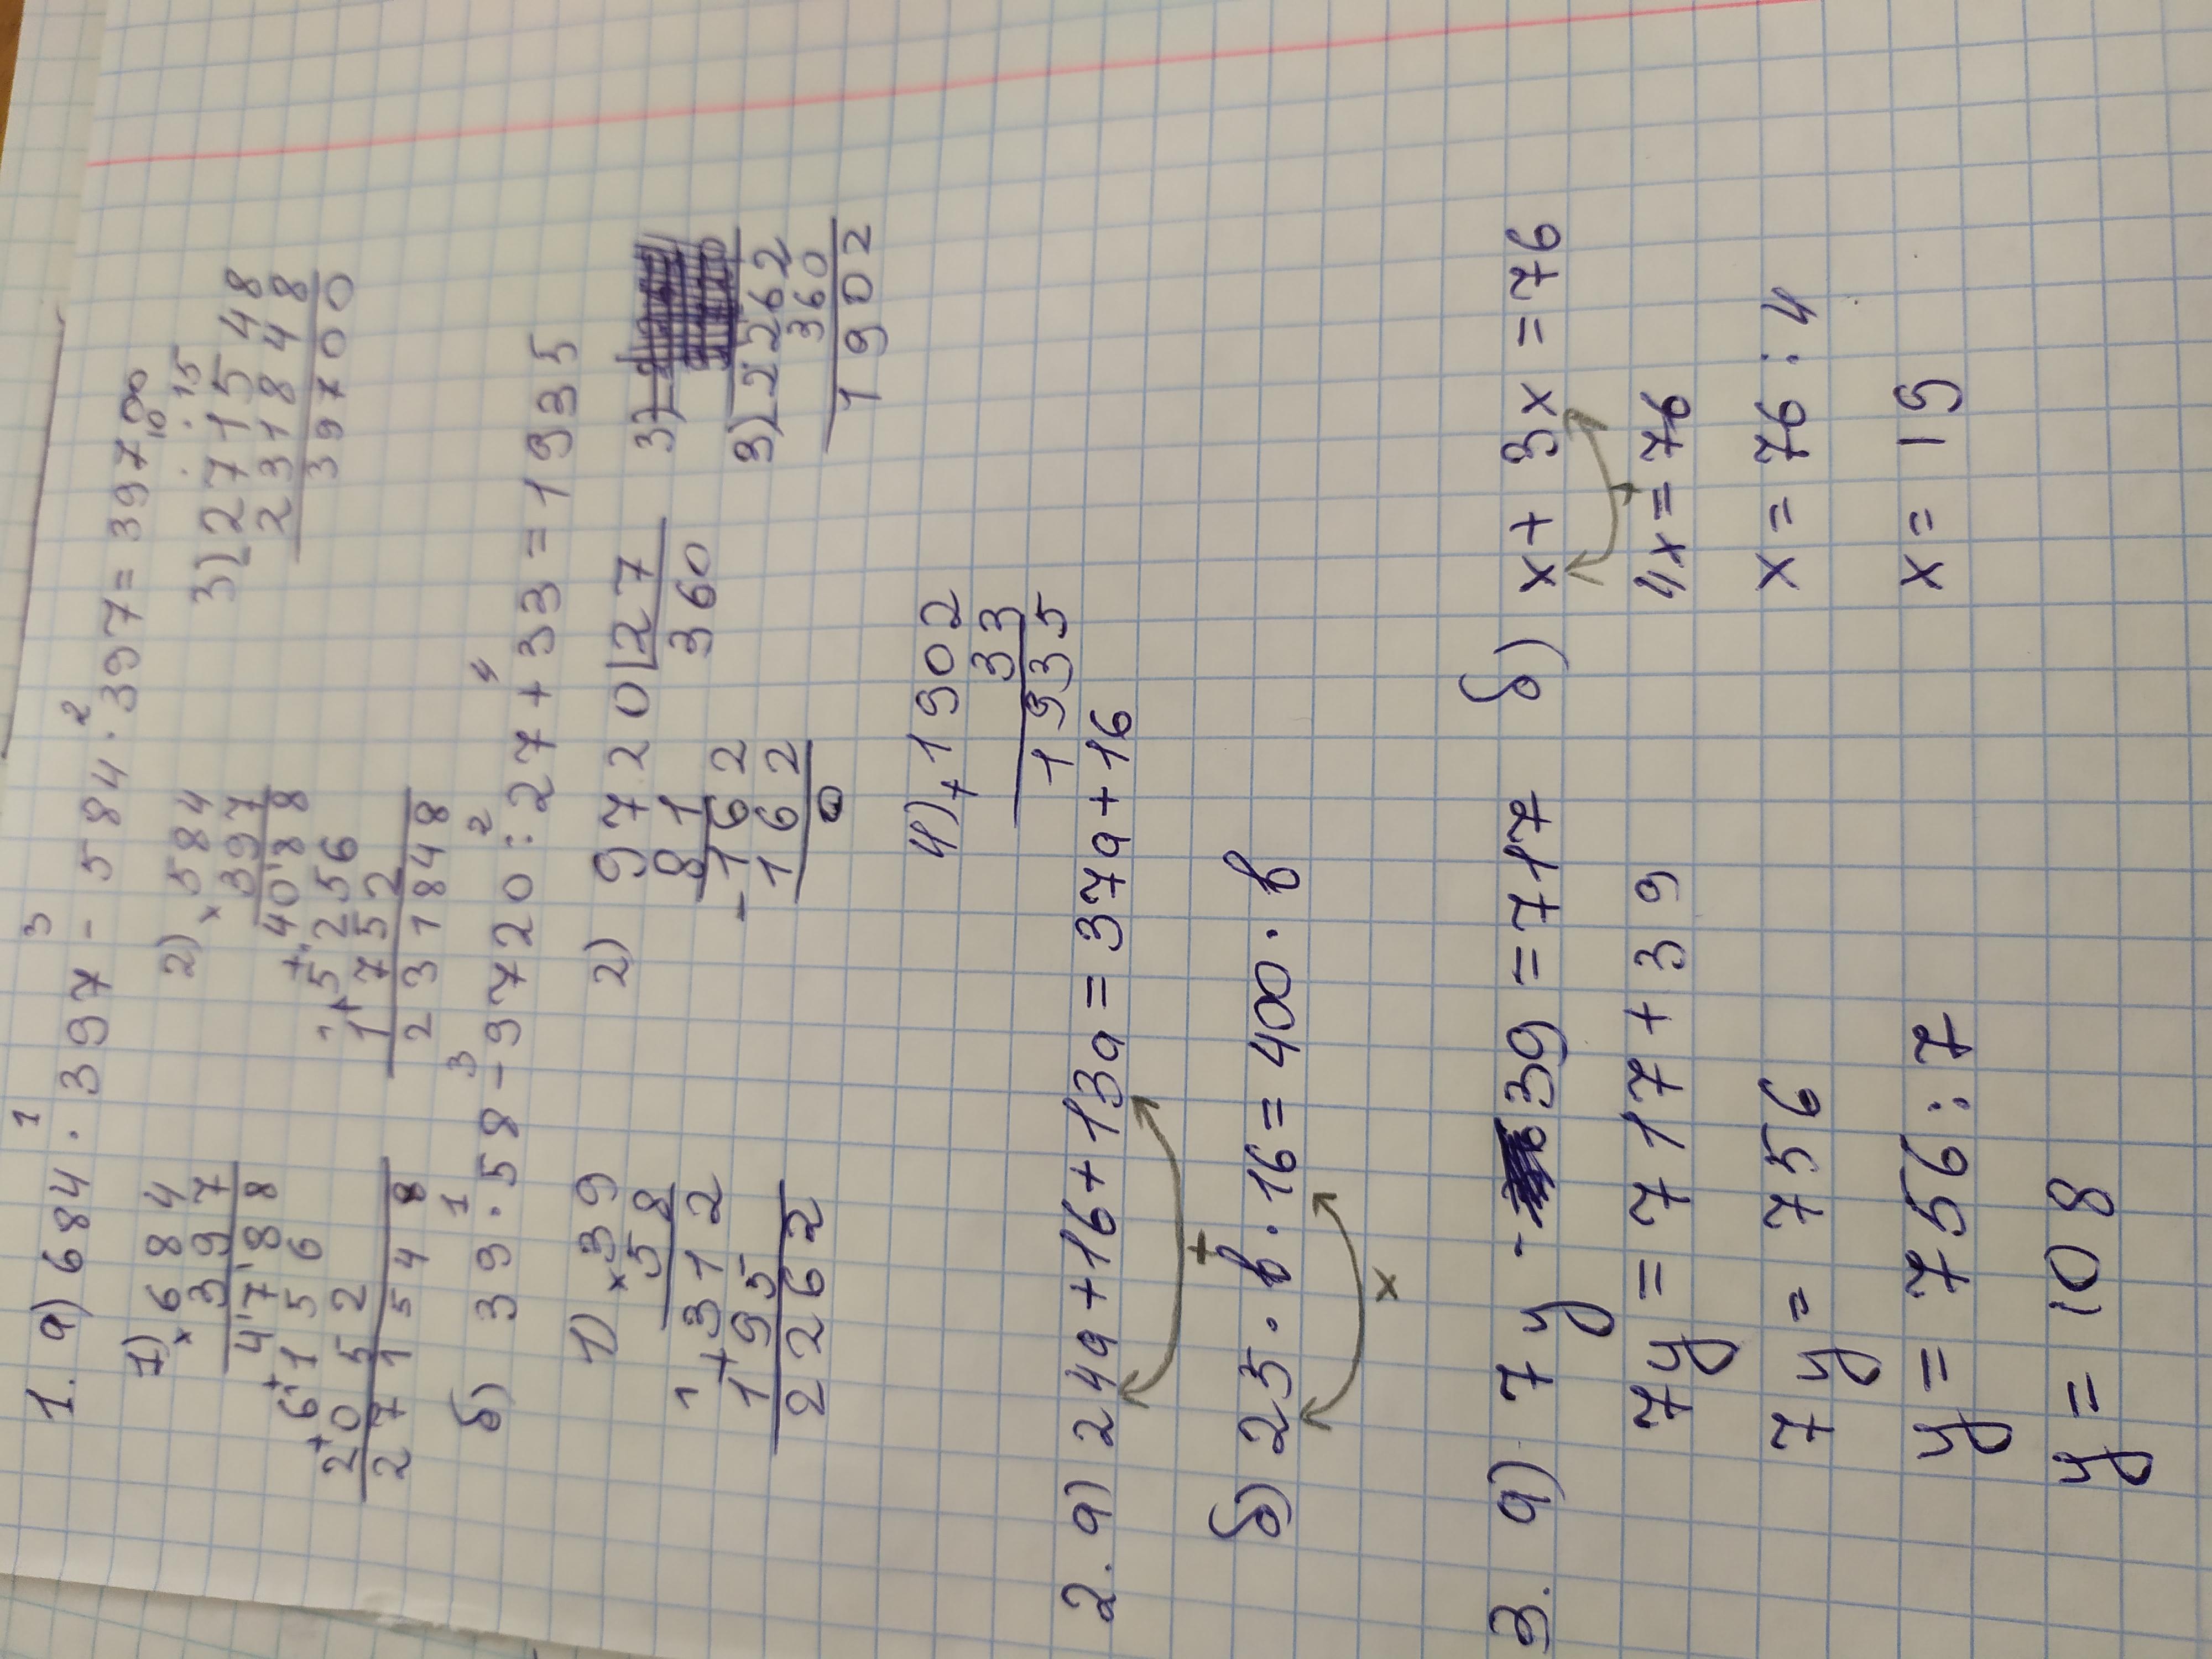 1. а) 684 · 397 - 584 · 397 = 39700
1) × 684
397
4788
+ 6156
+ 2052
271548
2) × 584
397
4088
+ 5256
+ 1752
231848
3) - 271548
231848
39700
б) 39 · 58 - 9720 : 27 + 33 = 1935
1) × 39
58
312
+ 195
2262
2) 9720 | 27
81 360
- 162
162
0
3)
3) - 2262
360
1902
4) + 1902
33
1935
2. а) 24а + 16 + 13а = 37а + 16
+
б) 25 · в · 16 = 400 · в
×
3. а) 7у - 39 = 717
7у = 717 + 39
7у = 756
у = 756 : 7
у = 108
б) х + 3х = 76
+
4х = 76
х = 76 : 4
х = 19